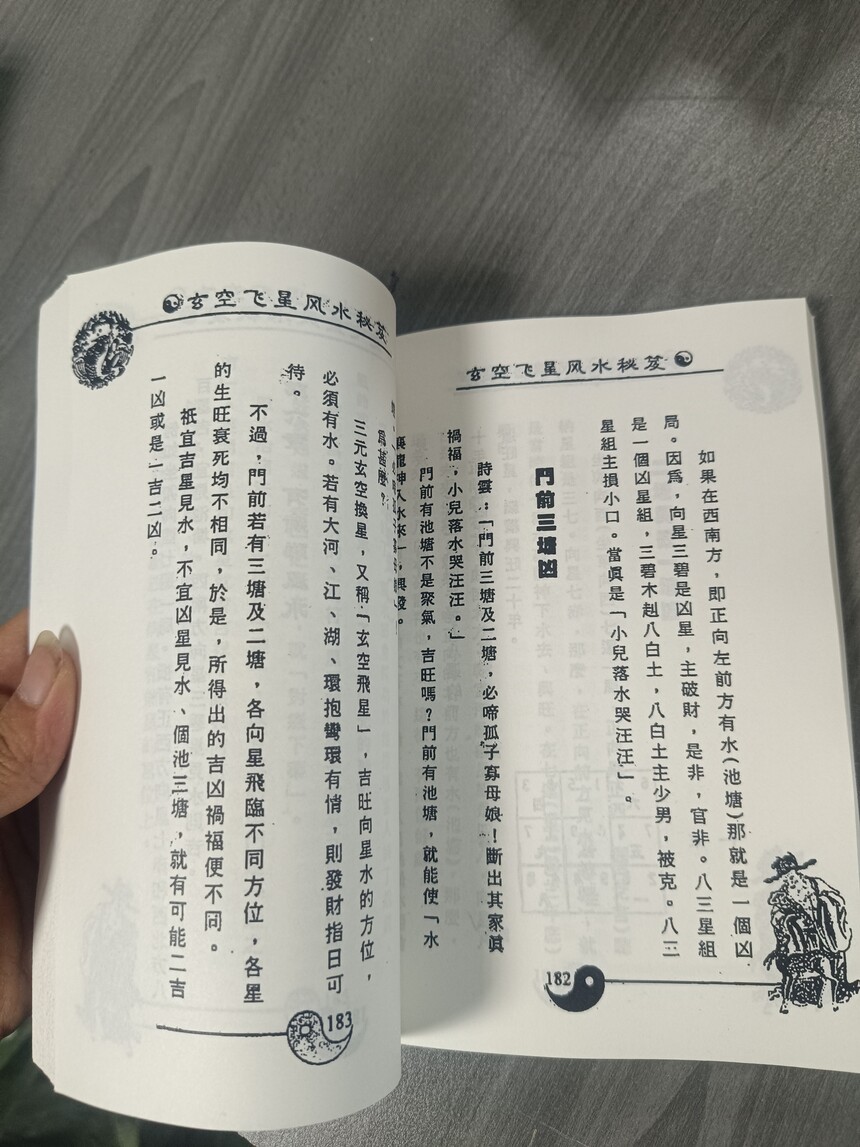 玄空飞星风水秘笈
如果在西南方，即正向左前方有水(池塘)那就是一個凶
局。因爲，向星三碧是凶星，主破財，是非，官非。八三星組
是一個凶星組，三碧木剋八白土，八白土主少男，被克。八三
星組主損小口。當眞是「小兒落水哭汪汪」。
門前三塘凶
詩雲：「門前三塘及二塘，必啼孤子寡母娘！斷出其家眞
禍福，小兒落水哭汪汪。」
門前有池塘不是聚氣，吉旺嗎？門前有池塘，就能使「水
裏龍神入水來」，興發。
182
玄空飞星风水秘笈
爲甚麼？
三元玄空換星，又稱「玄空飛星」，吉旺向星水的方位，
必須有水。若有大河、江、湖、環抱彎環有情，則發財指日可
待。
不過，門前若有三塘及二塘，各向星飛臨不同方位，各星
的生旺衰死均不相同，於是，所得出的吉凶禍福便不同。
祇宜吉星見水，不宜凶星見水、個池三塘，就有可能二吉
一凶或是一吉二凶。
183